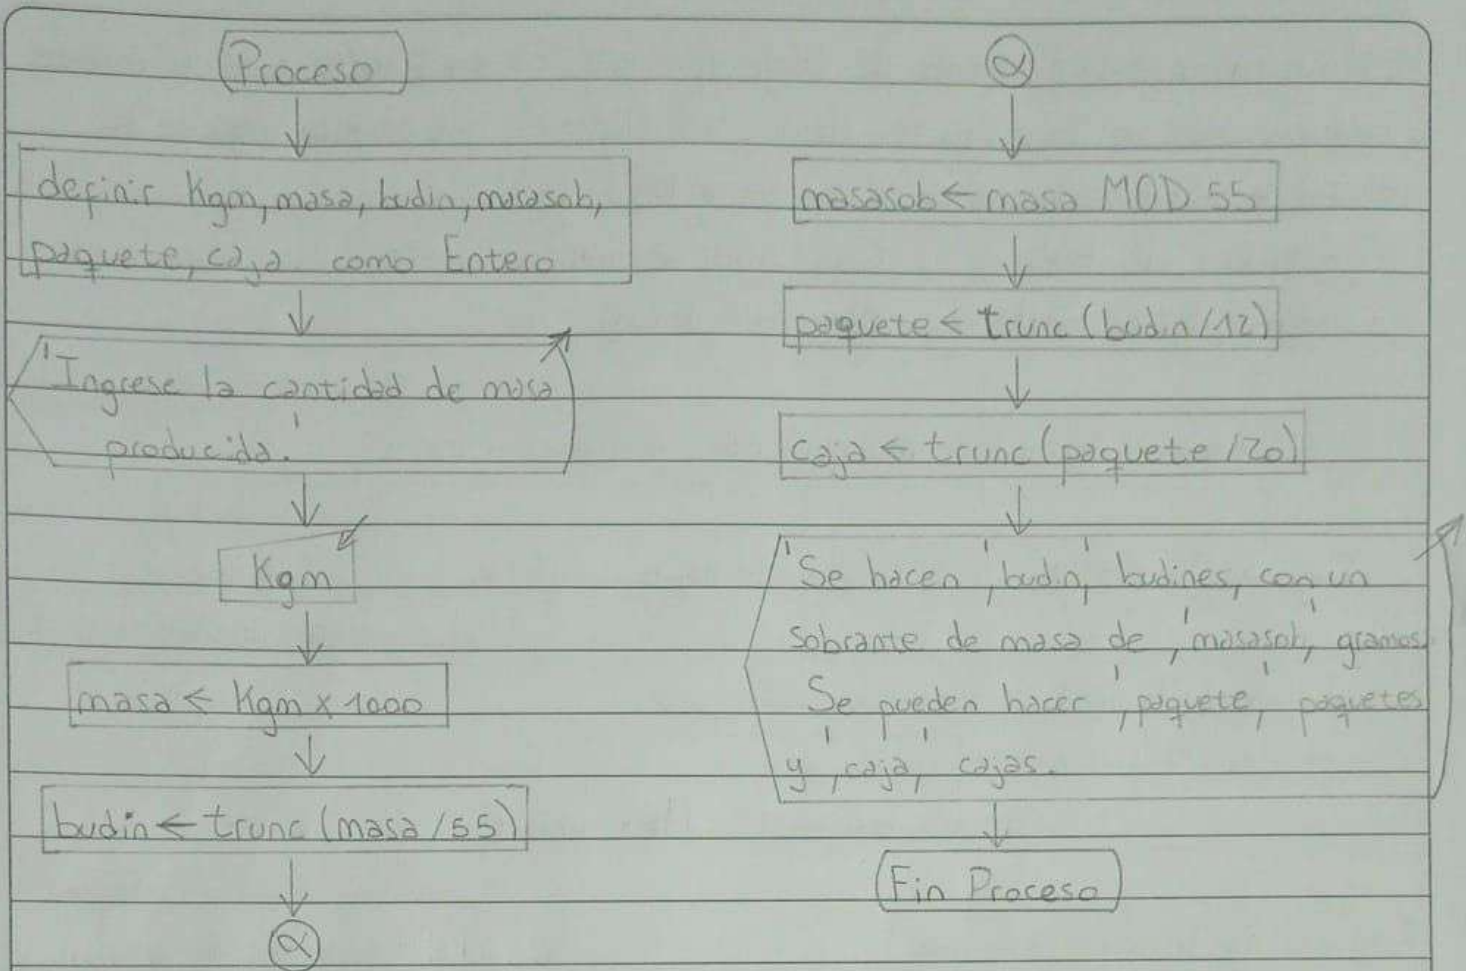 Proceso
definir Kgm, masa, budin, masasob,
paquete, caja como Entero
'Ingrese la cantidad de masa
producida.'
Kgm
masa ← Kgm x 1000
budin ← trunc (masa / 55)
α
α
masasob ← masa MOD 55
paquete ← trunc (budin / 12)
caja ← trunc (paquete / 20)
'Se hacen ', budin, ' budines, con un
sobrante de masa de ', masasob, ' gramos.
Se pueden hacer ', paquete, ' paquetes
y ', caja, ' cajas.
Fin Proceso